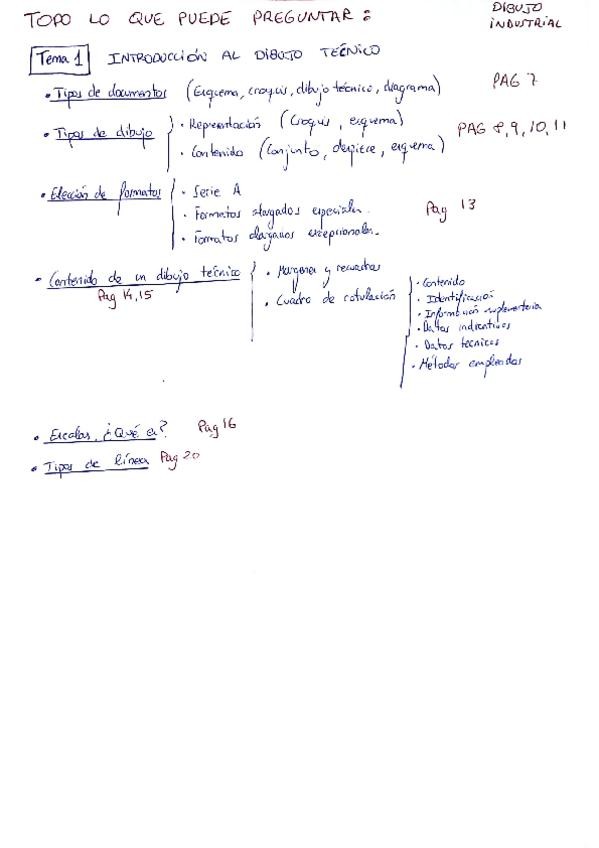 TODO LO QUE PUEDE PREGUNTAR:
DIBUJO
INDUSTRIAL
Tema 1 INTRODUCCIÓN AL DIBUJO TECNICO
• Tipos de documentos (Esquema, croquis, dibujo técnico, diagrama) PAG 7
• Tipos de dibujo
• Representación (Croquis, esquema)
• Contenido (Conjunto, despiece, esquema)
PAG 8, 9, 10, 11
• Elección de formatos
• Serie A
• Formatos alargados especiales.
• Formatos alargados excepcionales.
Pag 13
• Contenido de un dibujo técnico
Pag 14, 15
• Margenes y recuadros
• Cuadro de rotulación
• Contenido
• Identificación
• Información suplementaria
• Datos indicativos
• Datos tecnicos
• Métodos empleados
• Escalas, ¿Qué es? Pag 16
• Tipos de línea Pag 20